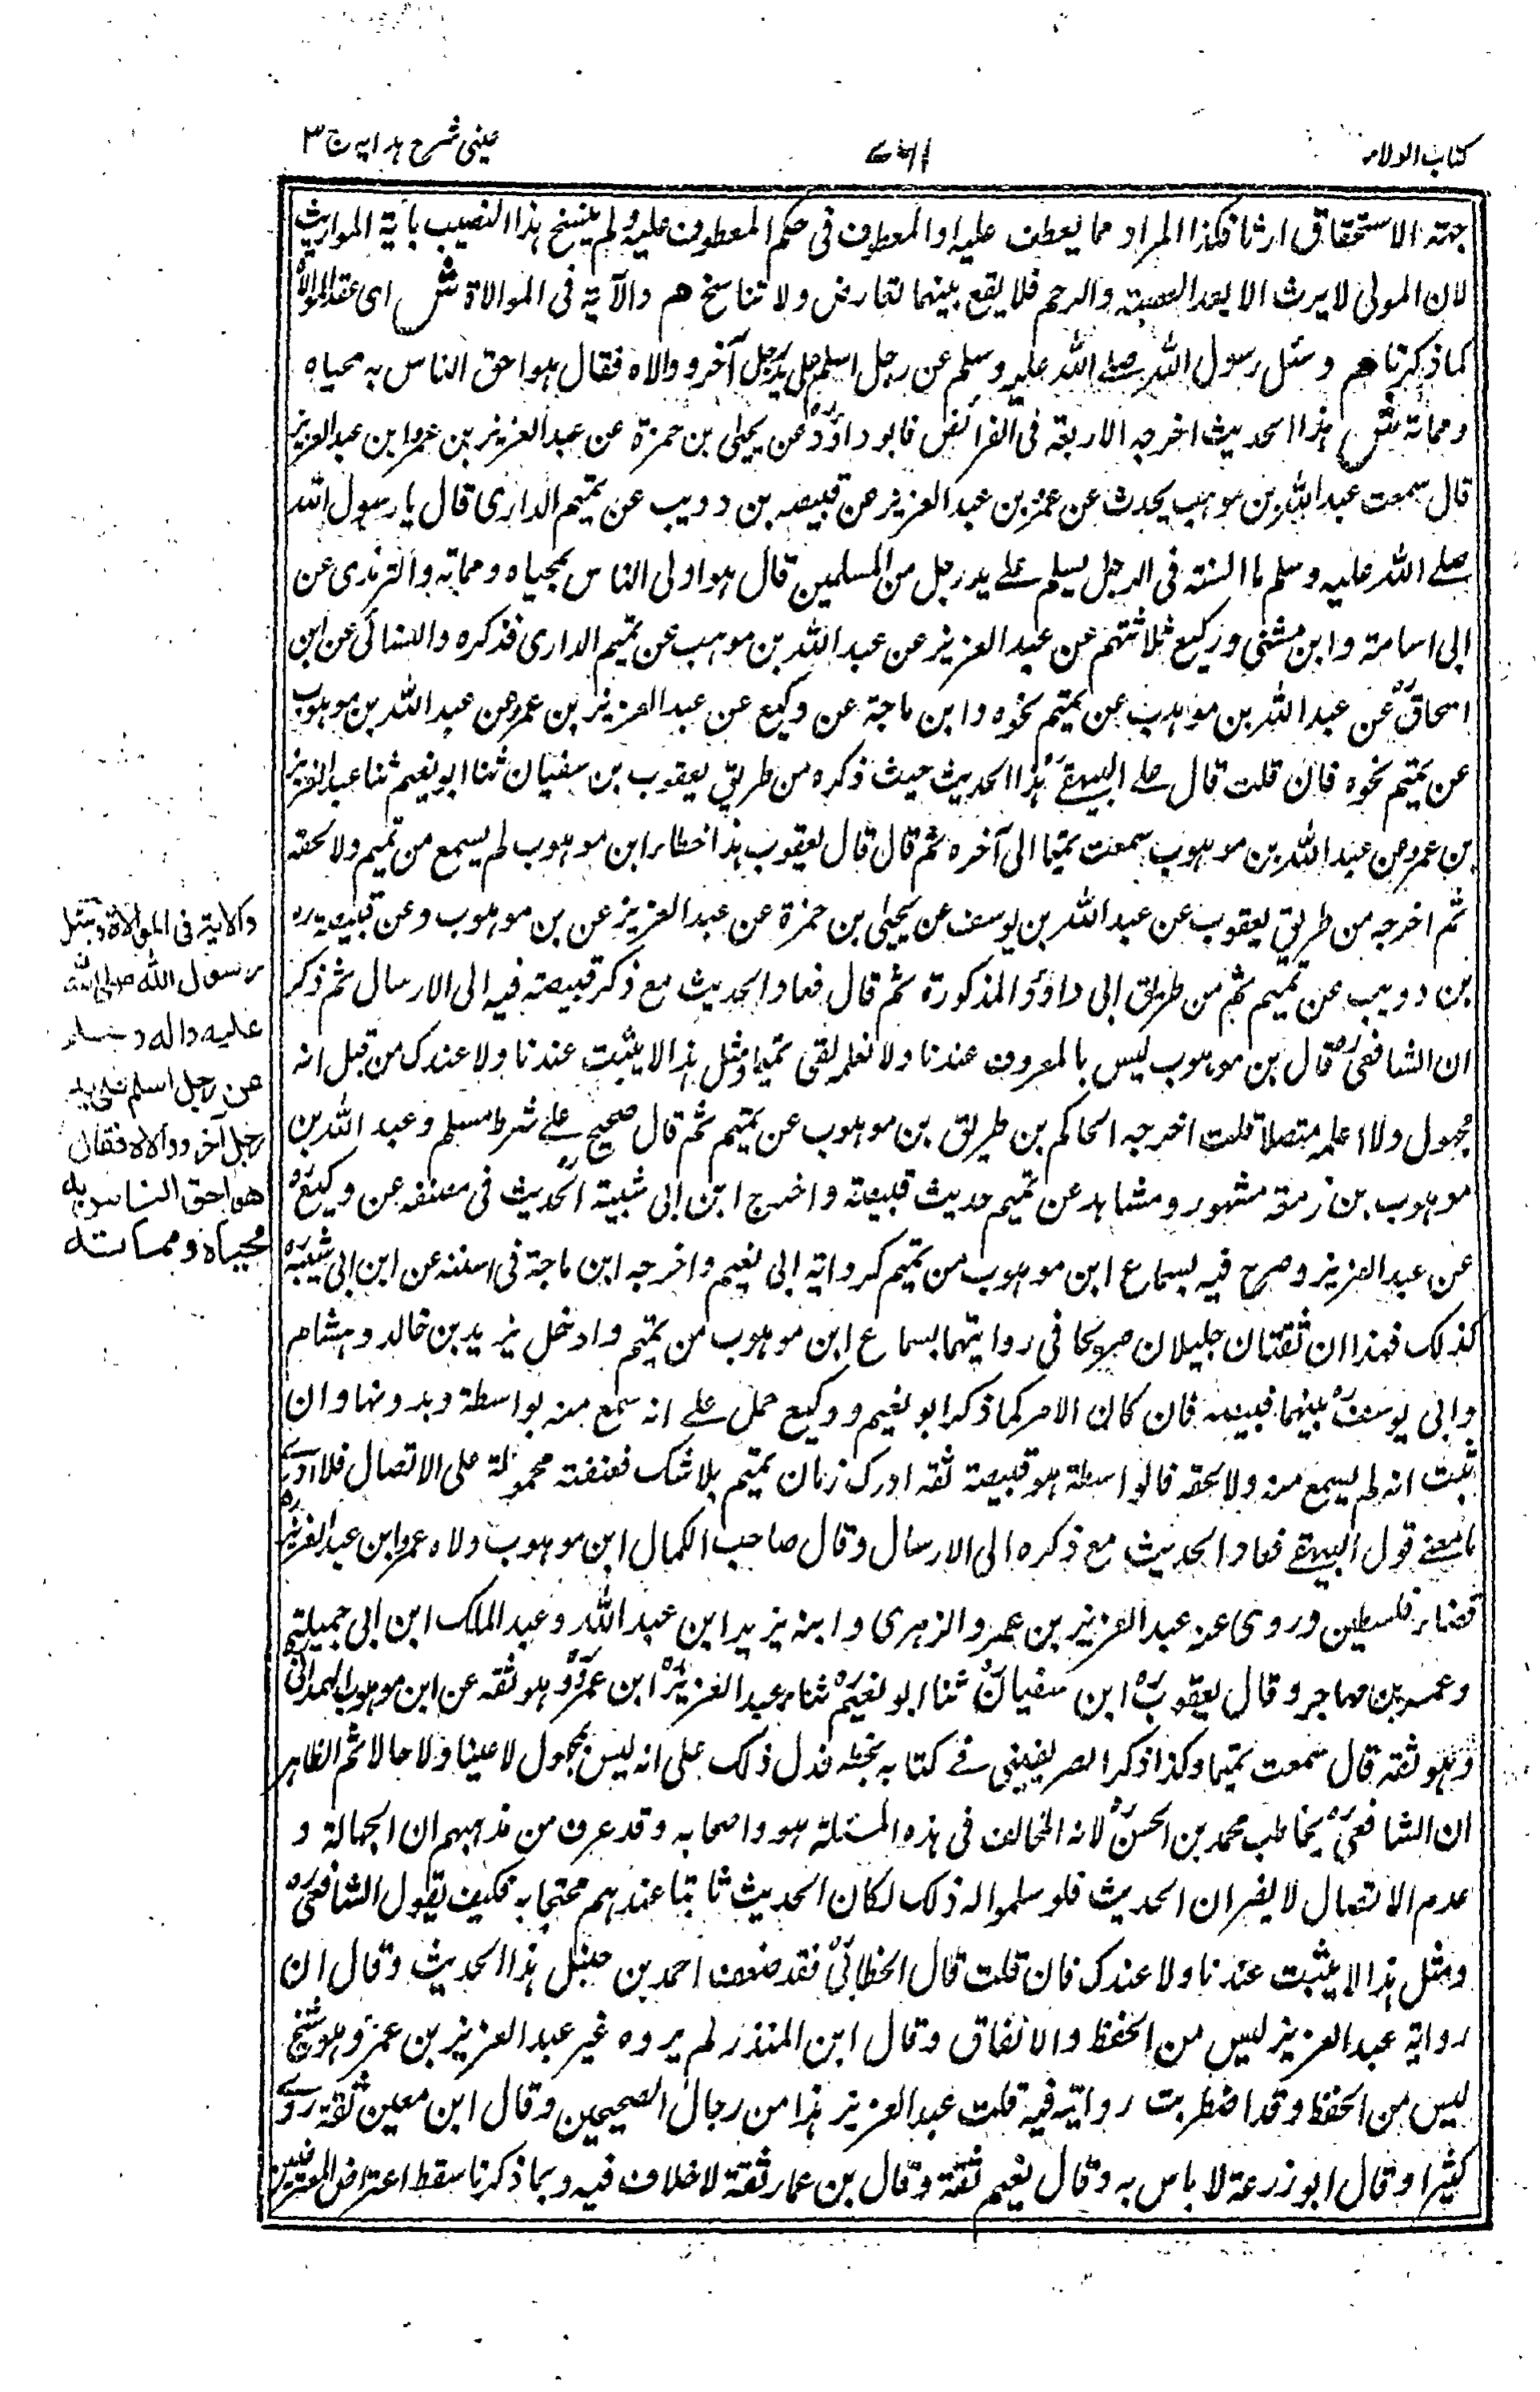 كتاب الولاء
٧٦١
عينى شرح هدايه ج ٣
جهته الاستحقاق ارثا فكذا المراد مما يعطف عليه اذ المعطوف فى حكم المعطوف عليه ولم ينسخ هذا النصيب بآية المواريث
لان المولى لا يرث الا بعد العصبة والرحم فلا يقع بينهما تعارض ولا تناسخ هم والآية فى الموالاة ش اى عقد الموالاة
كما ذكرنا هم وسئل رسول الله صلے الله عليه وسلم عن رجل اسلم على يد رجل آخر ووالاه فقال هو احق الناس به محياه
ومماته ش هذا الحديث اخرجه الاربعة فى الفرائض فابو داؤد عن يحيى بن حمزة عن عبد العزيز بن عمر ابن عبد العزيز
قال سمعت عبد الله بن موهب يحدث عن عمر بن عبد العزيز عن قبيصه بن دويب عن تميم الدارى قال يا رسول الله
صلے الله عليه وسلم ما السنة فى الرجل يسلم علے يد رجل من المسلمين قال هو اولى الناس بمحياه ومماته والترمذى عن
ابى اسامة وابن مثنى ووكيع ثلاثتهم عن عبد العزيز عن عبد الله بن موهب عن تميم الدارى فذكره والنسائى عن ابن
اسحاق عن عبد الله بن موهب عن تميم نحوه وابن ماجة عن وكيع عن عبد العزيز بن عمر عن عبد الله بن موهوب
عن تميم نحوه فان قلت قال علے البيهقے هذا الحديث حيث ذكره من طريق يعقوب بن سفيان ثنا ابو نعيم ثنا عبد العزيز
بن عمر عن عبد الله بن موهوب سمعت تميما الى آخره ثم قال قال يعقوب هذا خطاء ابن موهوب لم يسمع من تميم ولا لحقه
ثم اخرجه من طريق يعقوب عن عبد الله بن يوسف عن يحيى بن حمزة عن عبد العزيز عن بن موهوب وعن قبيصة
بن دويب عن تميم ثم من طريق ابى داؤد المذكورة ثم قال فعاد الحديث مع ذكر قبيصة فيه الى الارسال ثم ذكر
ان الشافعى قال بن موهوب ليس بالمعروف عندنا ولا نعلمه لقى تميما ومثل هذا لا يثبت عندنا ولا عندك من قبل انه
مجهول ولا اعلمه متصلا قلت اخرجه الحاكم بن طريق بن موهوب عن تميم ثم قال صحيح علے شرط مسلم وعبد الله بن
موهوب بن زمعة مشهور ومشاهد عن تميم حديث قبيصة واخرج ابن ابى شيبة الحديث فى مصنفه عن وكيع
عن عبد العزيز وصرح فيه بسماع ابن موهوب من تميم كرواية ابى نعيم واخرجه ابن ماجة فى سننه عن ابن ابى شيبة
كذلك فهذا ان ثقتان جليلان صرحا فى روايتهما بسماع ابن موهوب من تميم وادخل يزيد بن خالد وهشام
وابى يوسف بينهما قبيصه فان كان الامر كما ذكر ابو نعيم ووكيع حمل علے انه سمع منه بواسطة وبدونها وان
ثبت انه لم يسمع منه ولا لحقه فالواسطة هو قبيصة ثقه ادرك زمان تميم بلا شك فعنعنته محمولة على الاتصال فلا ادرى
ما معنے قول البيهقے فعاد الحديث مع ذكره الى الارسال وقال صاحب الكمال ابن موهوب ولاه عمر ابن عبد العزيز
قضاء فلسطين وروى عنه عبد العزيز بن عمر والزهرى وابنه يزيد ابن عبد الله وعبد الملك ابن ابى جميلة
وعمر بن مهاجر وقال يعقوب ابن سفيان ثنا ابو نعيم ثناء عبد العزيز ابن عمر وهو ثقه عن ابن موهوب الهمدانى
وهو ثقه قال سمعت تميما وكذا ذكر الصريفينى فے كتابه بخطه فدل ذلك على انه ليس بمجهول لا عينا ولا حالا ثم الظاهر
ان الشافعى يخاطب محمد بن الحسن لانه المخالف فى هذه المسئلة هو واصحابه وقد عرف من مذهبهم ان الجهالة و
عدم الاتصال لا يضران الحديث فلو سلموا له ذلك لكان الحديث ثابتا عندهم محتجا به فكيف يقول الشافعى
ومثل هذا لا يثبت عندنا ولا عندك فان قلت قال الخطابى فقد ضعف احمد بن حنبل هذا الحديث وقال ان
رواية عبد العزيز ليس من الحفظ والاتفاق وقال ابن المنذر لم يروه غير عبد العزيز بن عمر وهو شيخ
ليس من الحفظ وقد اضطربت روايته فيه قلت عبد العزيز هذا من رجال الصحيحين وقال ابن معين ثقة روى
كثيرا وقال ابو زرعة لا باس به وقال نعيم ثقة وقال بن عمار ثقة لا خلاف فيه وبما ذكرنا سقط اعتراض المعترضين
والاية فى الموالاة وسئل
رسول الله صلى الله
عليه واله وسلم
عن رجل اسلم على يد
رجل آخر ووالاه فقال
هو احق الناس به
محياه ومماته